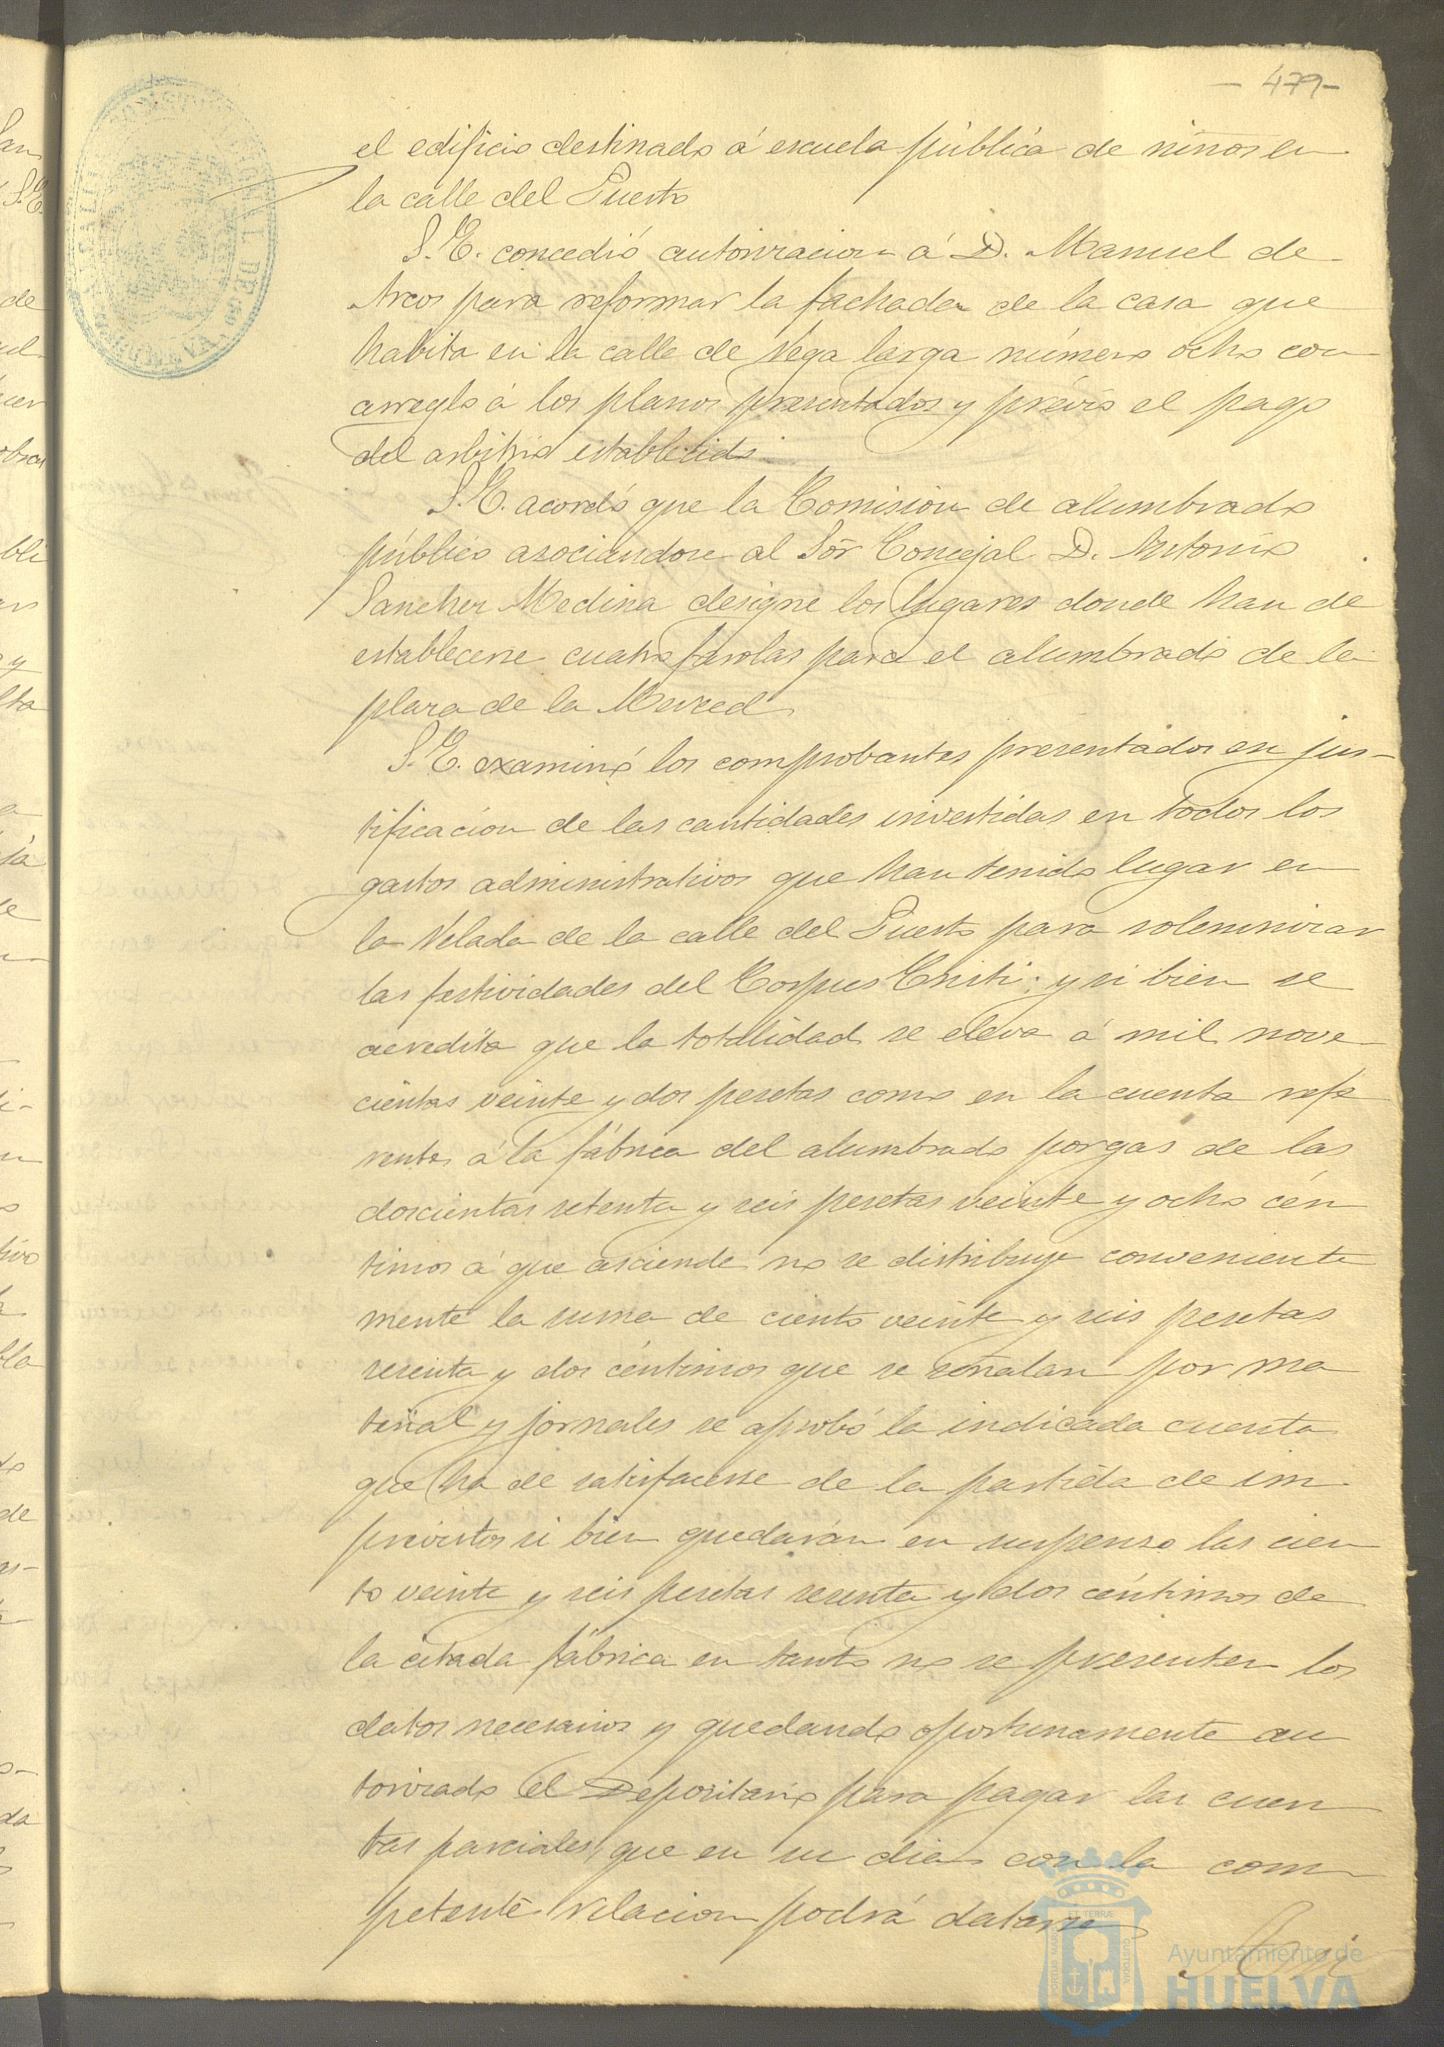 - 479 -
el edificio destinado á escuela pública de niños en
la calle del Puerto
S. E. concedió autorizacion á D. Manuel de
Arcos para reformar la fachada de la casa que
habita en la calle de Vega larga número ocho con
arreglo á los planos presentados y prévio el pago
del arbitrio establecido.
S. E. acordó que la Comision de alumbrado
público asociandose al Sōr Concejal D. Antonio
Sanchez Medina designe los lugares donde han de
establecerse cuatro farolas para el alumbrado de la
plaza de la Merced
S. E. examinó los comprobantes presentados en jus-
tificación de las cantidades invertidas en todos los
gastos administrativos que han tenido lugar en
la Velada de la calle del Puerto para solemnizar
las festividades del Corpus Cristi; y si bien se
acredita que la totalidad se eleva á mil nove
cientas veinte y dos pesetas como en la cuenta refe
rente á la fábrica del alumbrado por gas de las
doscientas setenta y seis pesetas veinte y ocho cén
timos á que asciende no se distribuye conveniente
mente la suma de ciento veinte y seis pesetas
sesenta y dos céntimos que se señalan por ma
terial y jornales se aprobó la indicada cuenta
que ha de satisfacerse de la partida de im
previstos si bien quedarán en suspenso las cien
to veinte y seis pesetas sesenta y dos céntimos de
la citada fábrica en tanto no se presenten los
datos necesarios y quedando oportunamente au
torizado el Depositario para pagar las cuen
tas parciales que en su dia con la com
petente relacion podrá datarse
Ayuntamiento de
HUELVA